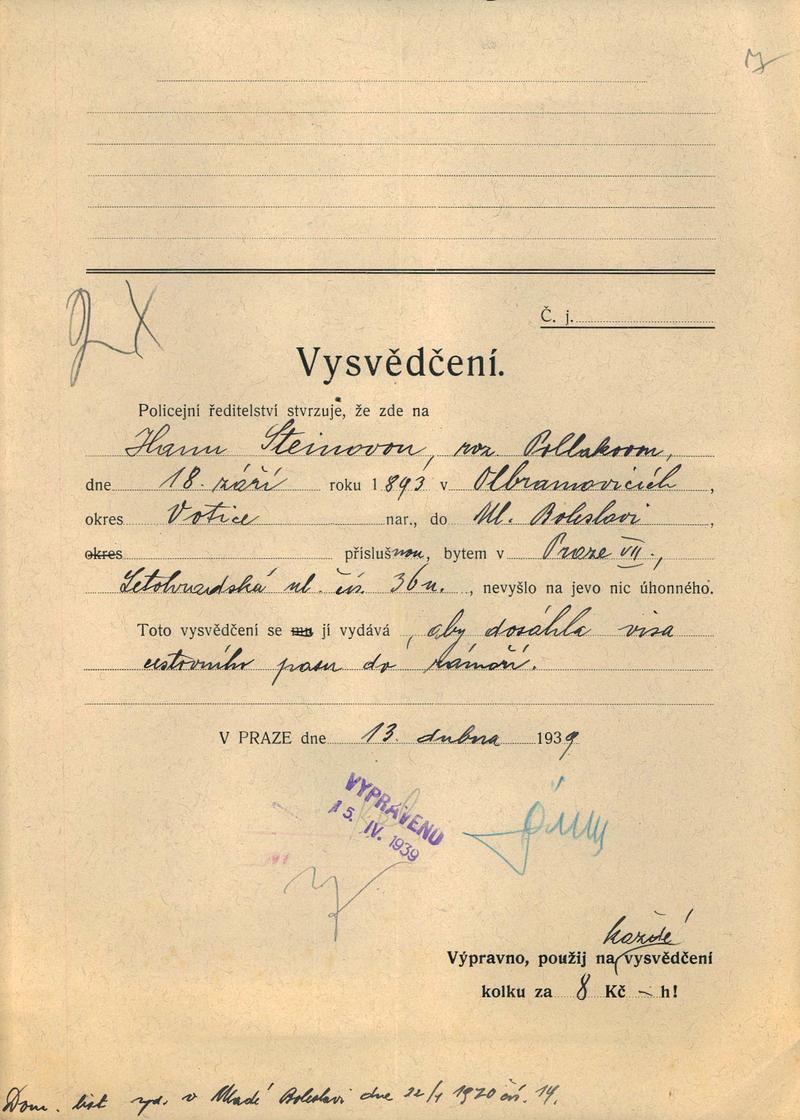 Č. j.
Vysvědčení.
Policejní ředitelství stvrzuje, že zde na
Hanu Steinovou, roz. Pollakovou,
dne 18. září roku 1893 v Olbramovicích,
okres Votice nar., do Ml. Boleslavi,
okres příslušnou, bytem v Praze VII.,
Letohradská ul. čís. 36n., nevyšlo na jevo nic úhonného.
Toto vysvědčení se mu jí vydává, aby dosáhla visa
cestovního pasu do zámoří.
V PRAZE dne 13. dubna 1939
VYPRAVENO
15. IV. 1939
každé
Výpravno, použij na vysvědčení
kolku za 8 Kč — h!
Dom. list vyd. v Mladé Boleslavi dne 22/4 1920 čís. 14.